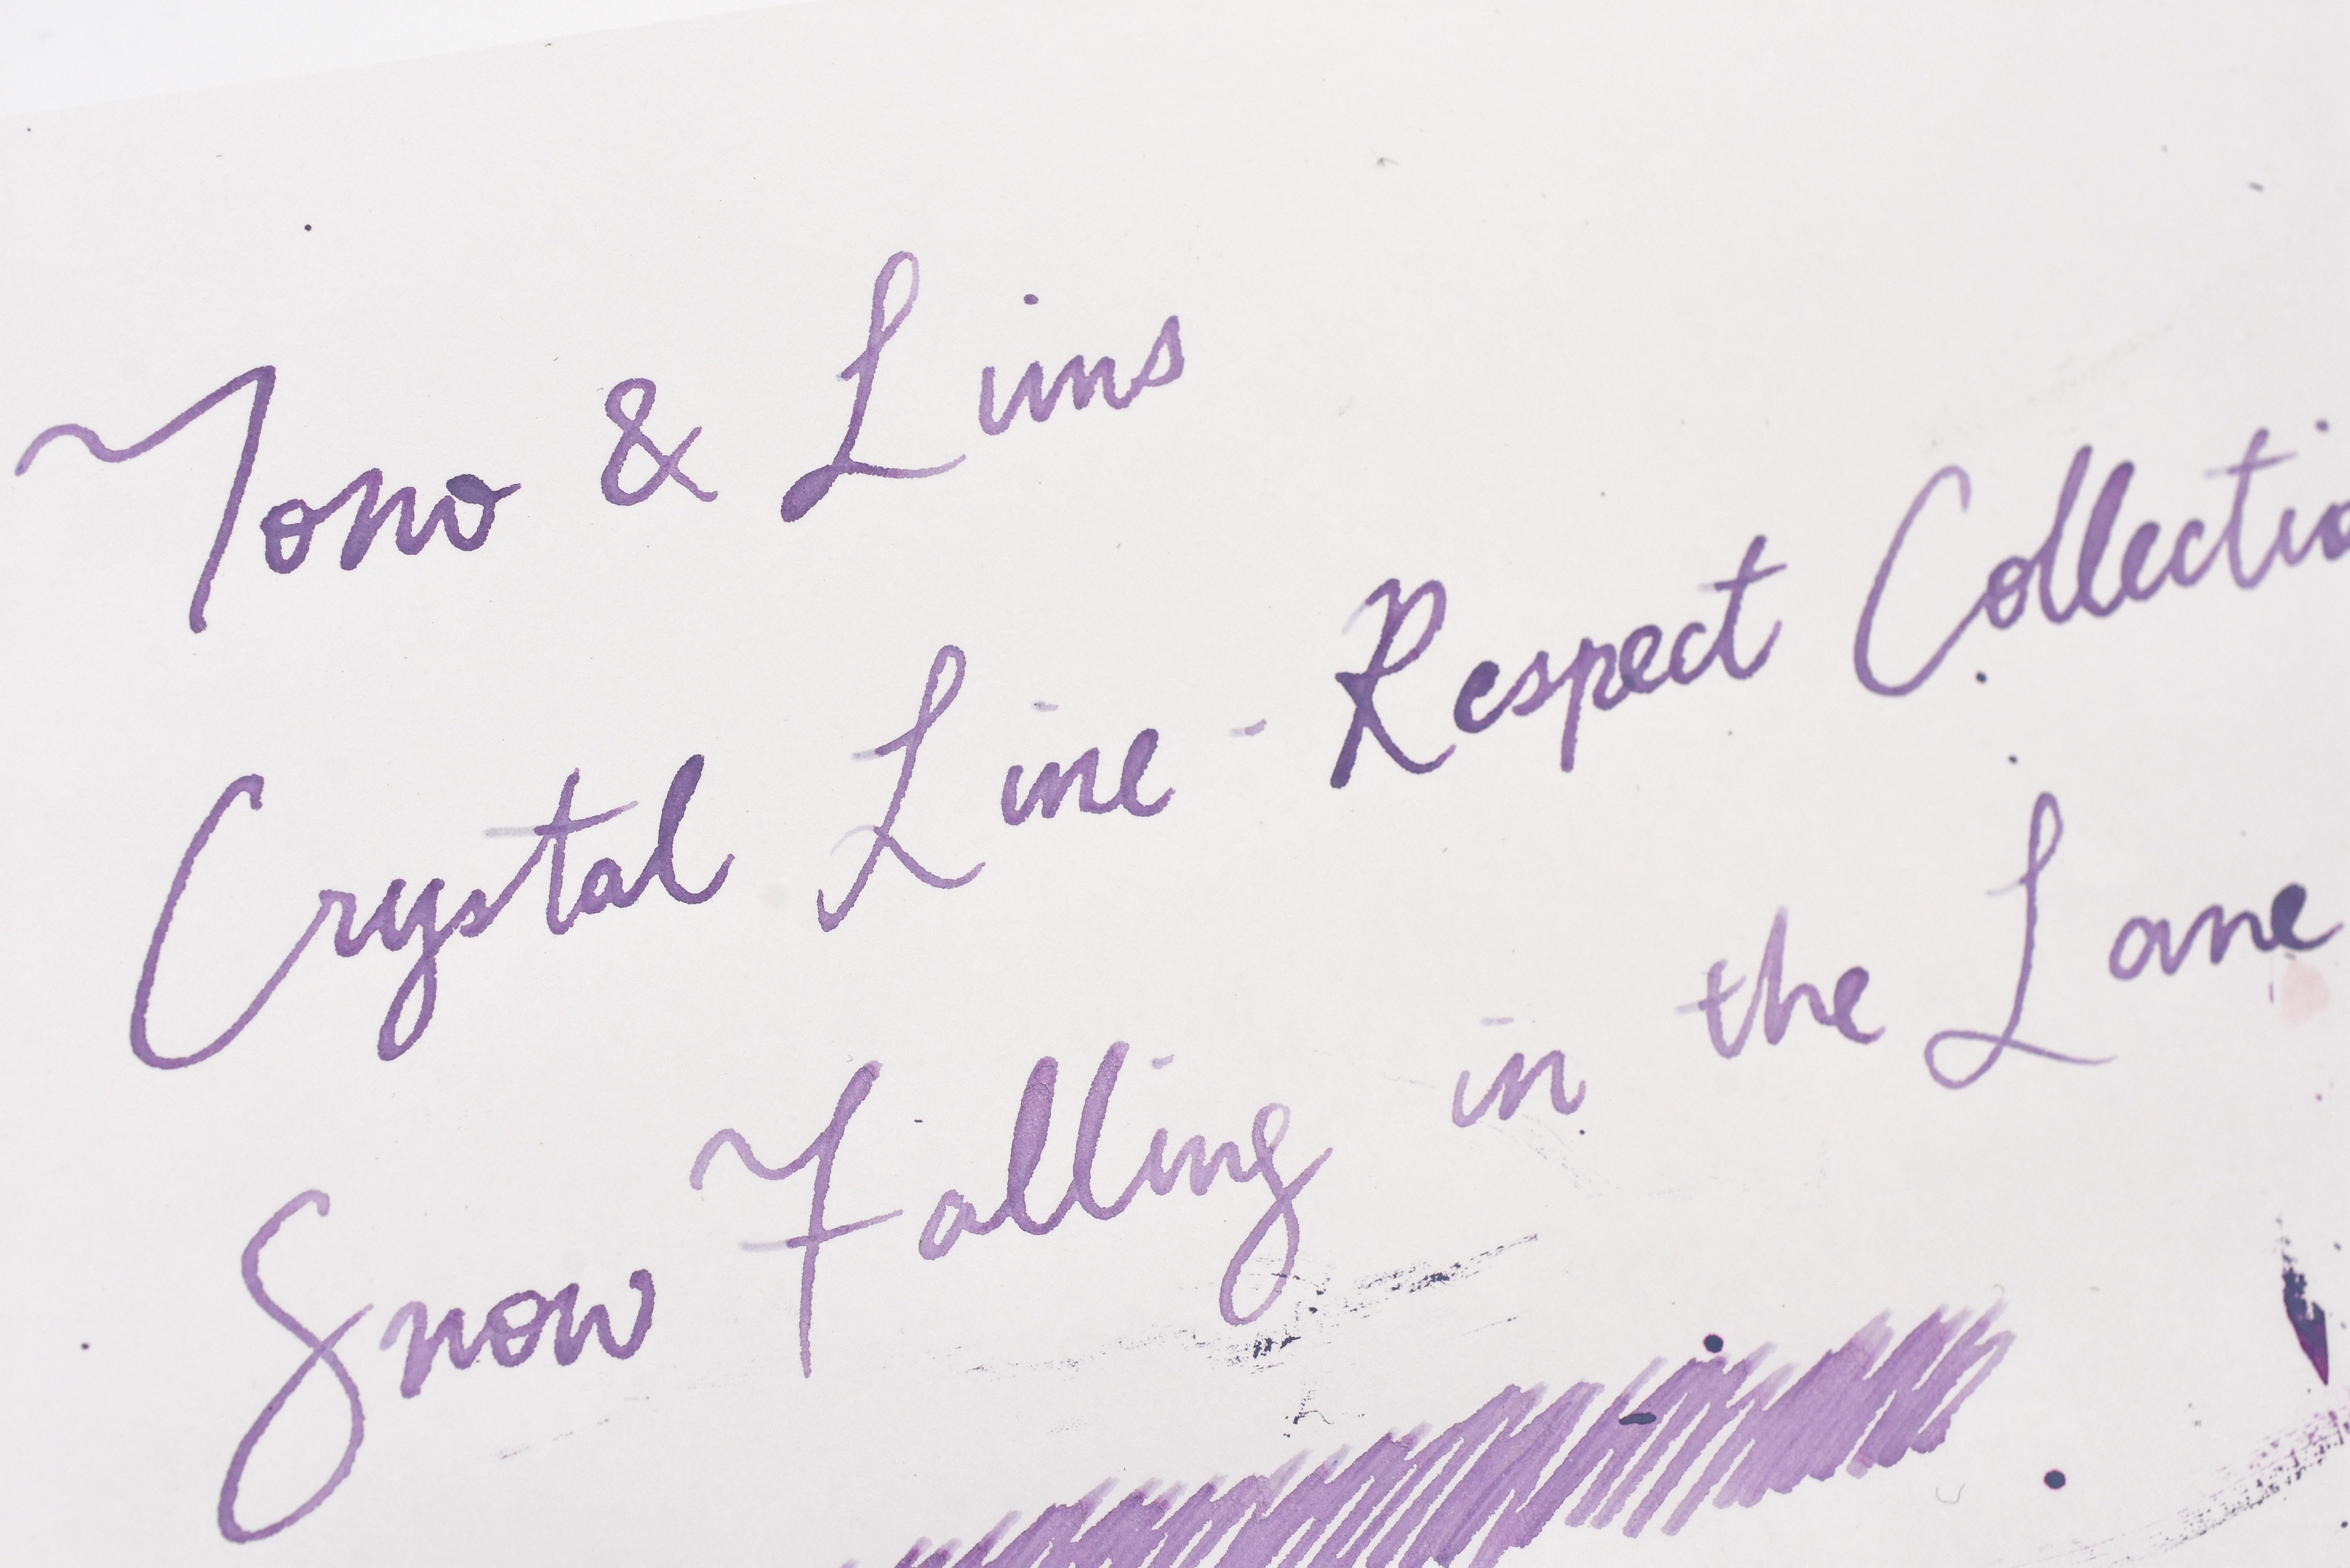 Tono & Lims
Crystal Line - Respect Collectio
Snow Falling in the Lane